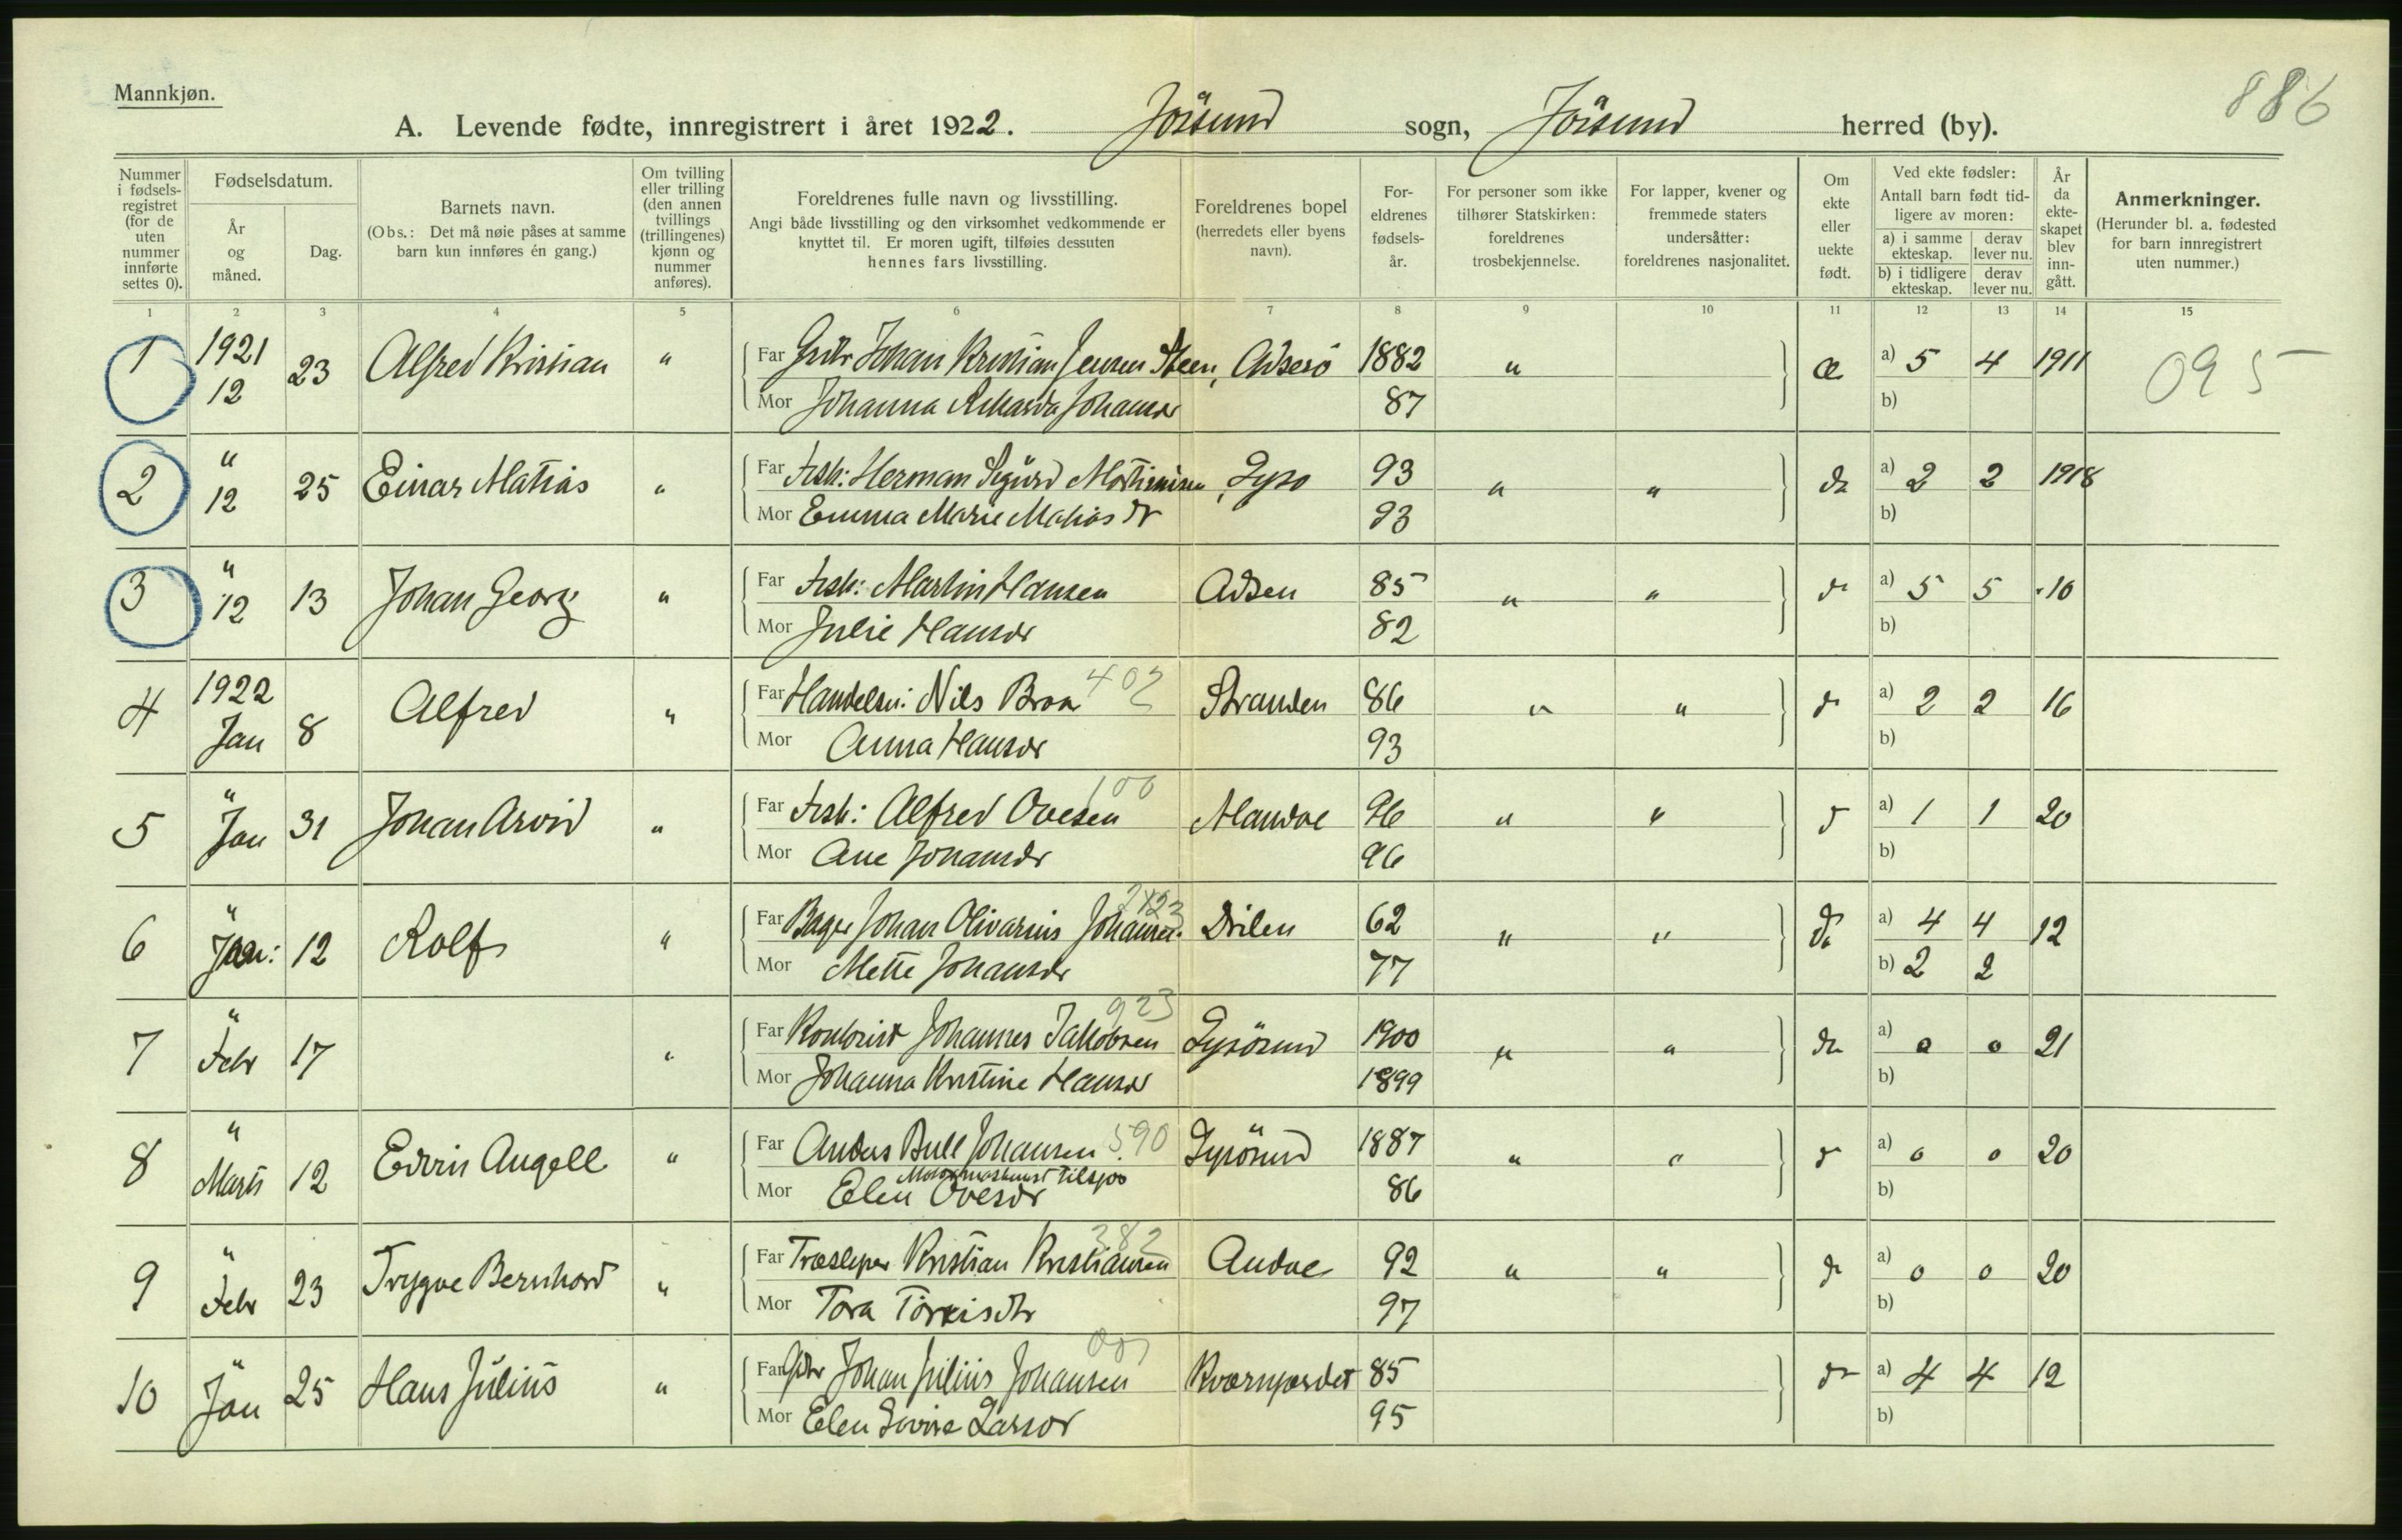 Mannkjøn.
886
A. Levende fødte, innregistrert i året 1922. Jösund sogn, Jösund herred (by).
Nummer i fødselsregistret (for de uten nummer innførte settes 0).
Fødselsdatum.
År og måned.
Dag.
Barnets navn.
(Obs.: Det må nøie påses at samme barn kun innføres én gang.)
Om tvilling eller trilling (den annen tvillings (trillingenes) kjønn og nummer anføres).
Foreldrenes fulle navn og livsstilling.
Angi både livsstilling og den virksomhet vedkommende er knyttet til. Er moren ugift, tilføies dessuten hennes fars livsstilling.
Foreldrenes bopel (herredets eller byens navn).
Foreldrenes fødselsår.
For personer som ikke tilhører Statskirken: foreldrenes trosbekjennelse.
For lapper, kvener og fremmede staters undersåtter: foreldrenes nasjonalitet.
Om ekte eller uekte født.
Ved ekte fødsler: Antall barn født tidligere av moren:
a) i samme ekteskap. derav lever nu.
b) i tidligere ekteskap. derav lever nu.
År da ekteskapet blev inngått.
Anmerkninger.
(Herunder bl. a. fødested for barn innregistrert uten nummer.)
1 2 3 4 5 6 7 8 9 10 11 12 13 14 15
1 1921 12 23 Alfred Kristian " Far Johan Kristian Jensen Steen, 1882 " æ a) 5 4 1911 095
Mor Johanna Johansdr 87 b)
2 " 12 25 Einar Matias " Far Fisk: Herman Sigurd Lysö 93 " " do a) 2 2 1918
Mor Emma Marie Matias dr 93 b)
3 " 12 13 Johan Georg " Far Fisk: Martin Hansen Adsen 85 " " d a) 5 5 -10
Mor Julie Hansdr 82 b)
4 1922 Jan 8 Alfred " Far Handelsm: Nils Braa 402 Stranden 86 " " d a) 2 2 16
Mor Anna Hansdr 93 b)
5 " Jan 31 Johan Arvid " Far Fisk: Alfred Ovesen 100 Mandal 96 " " d a) 1 1 20
Mor Ane Johansdr 96 b)
6 " Jan: 12 Rolf " Far Bager Johan Olivarius Johansen. Drilen 62 " " do a) 4 4 12
Mor Mette Johansdr 77 b) 2 2
7 " Febr 17 " Far Kontorist Johannes Jakobsen 923 Lysösund 1900 " " do a) 0 0 21
Mor Johanna Kristine Hansdr 1899 b)
8 " Marts 12 Edvin Angell " Far Anders Bull Johansen 590 Lysösund 1887 " " d a) 0 0 20
Motormaskinist tilsjøs
Mor Elen Ovesdr 86 b)
9 " Febr 23 Trygve Bernhard " Far Kristian Kristiansen 382 92 " " d a) 0 0 20
Mor Tora 97 b)
10 " Jan 25 Hans Julius " Far Gbr Johan Julius Johansen 001 85 do a) 4 4 12
Mor Elen Larsdr 95 b)